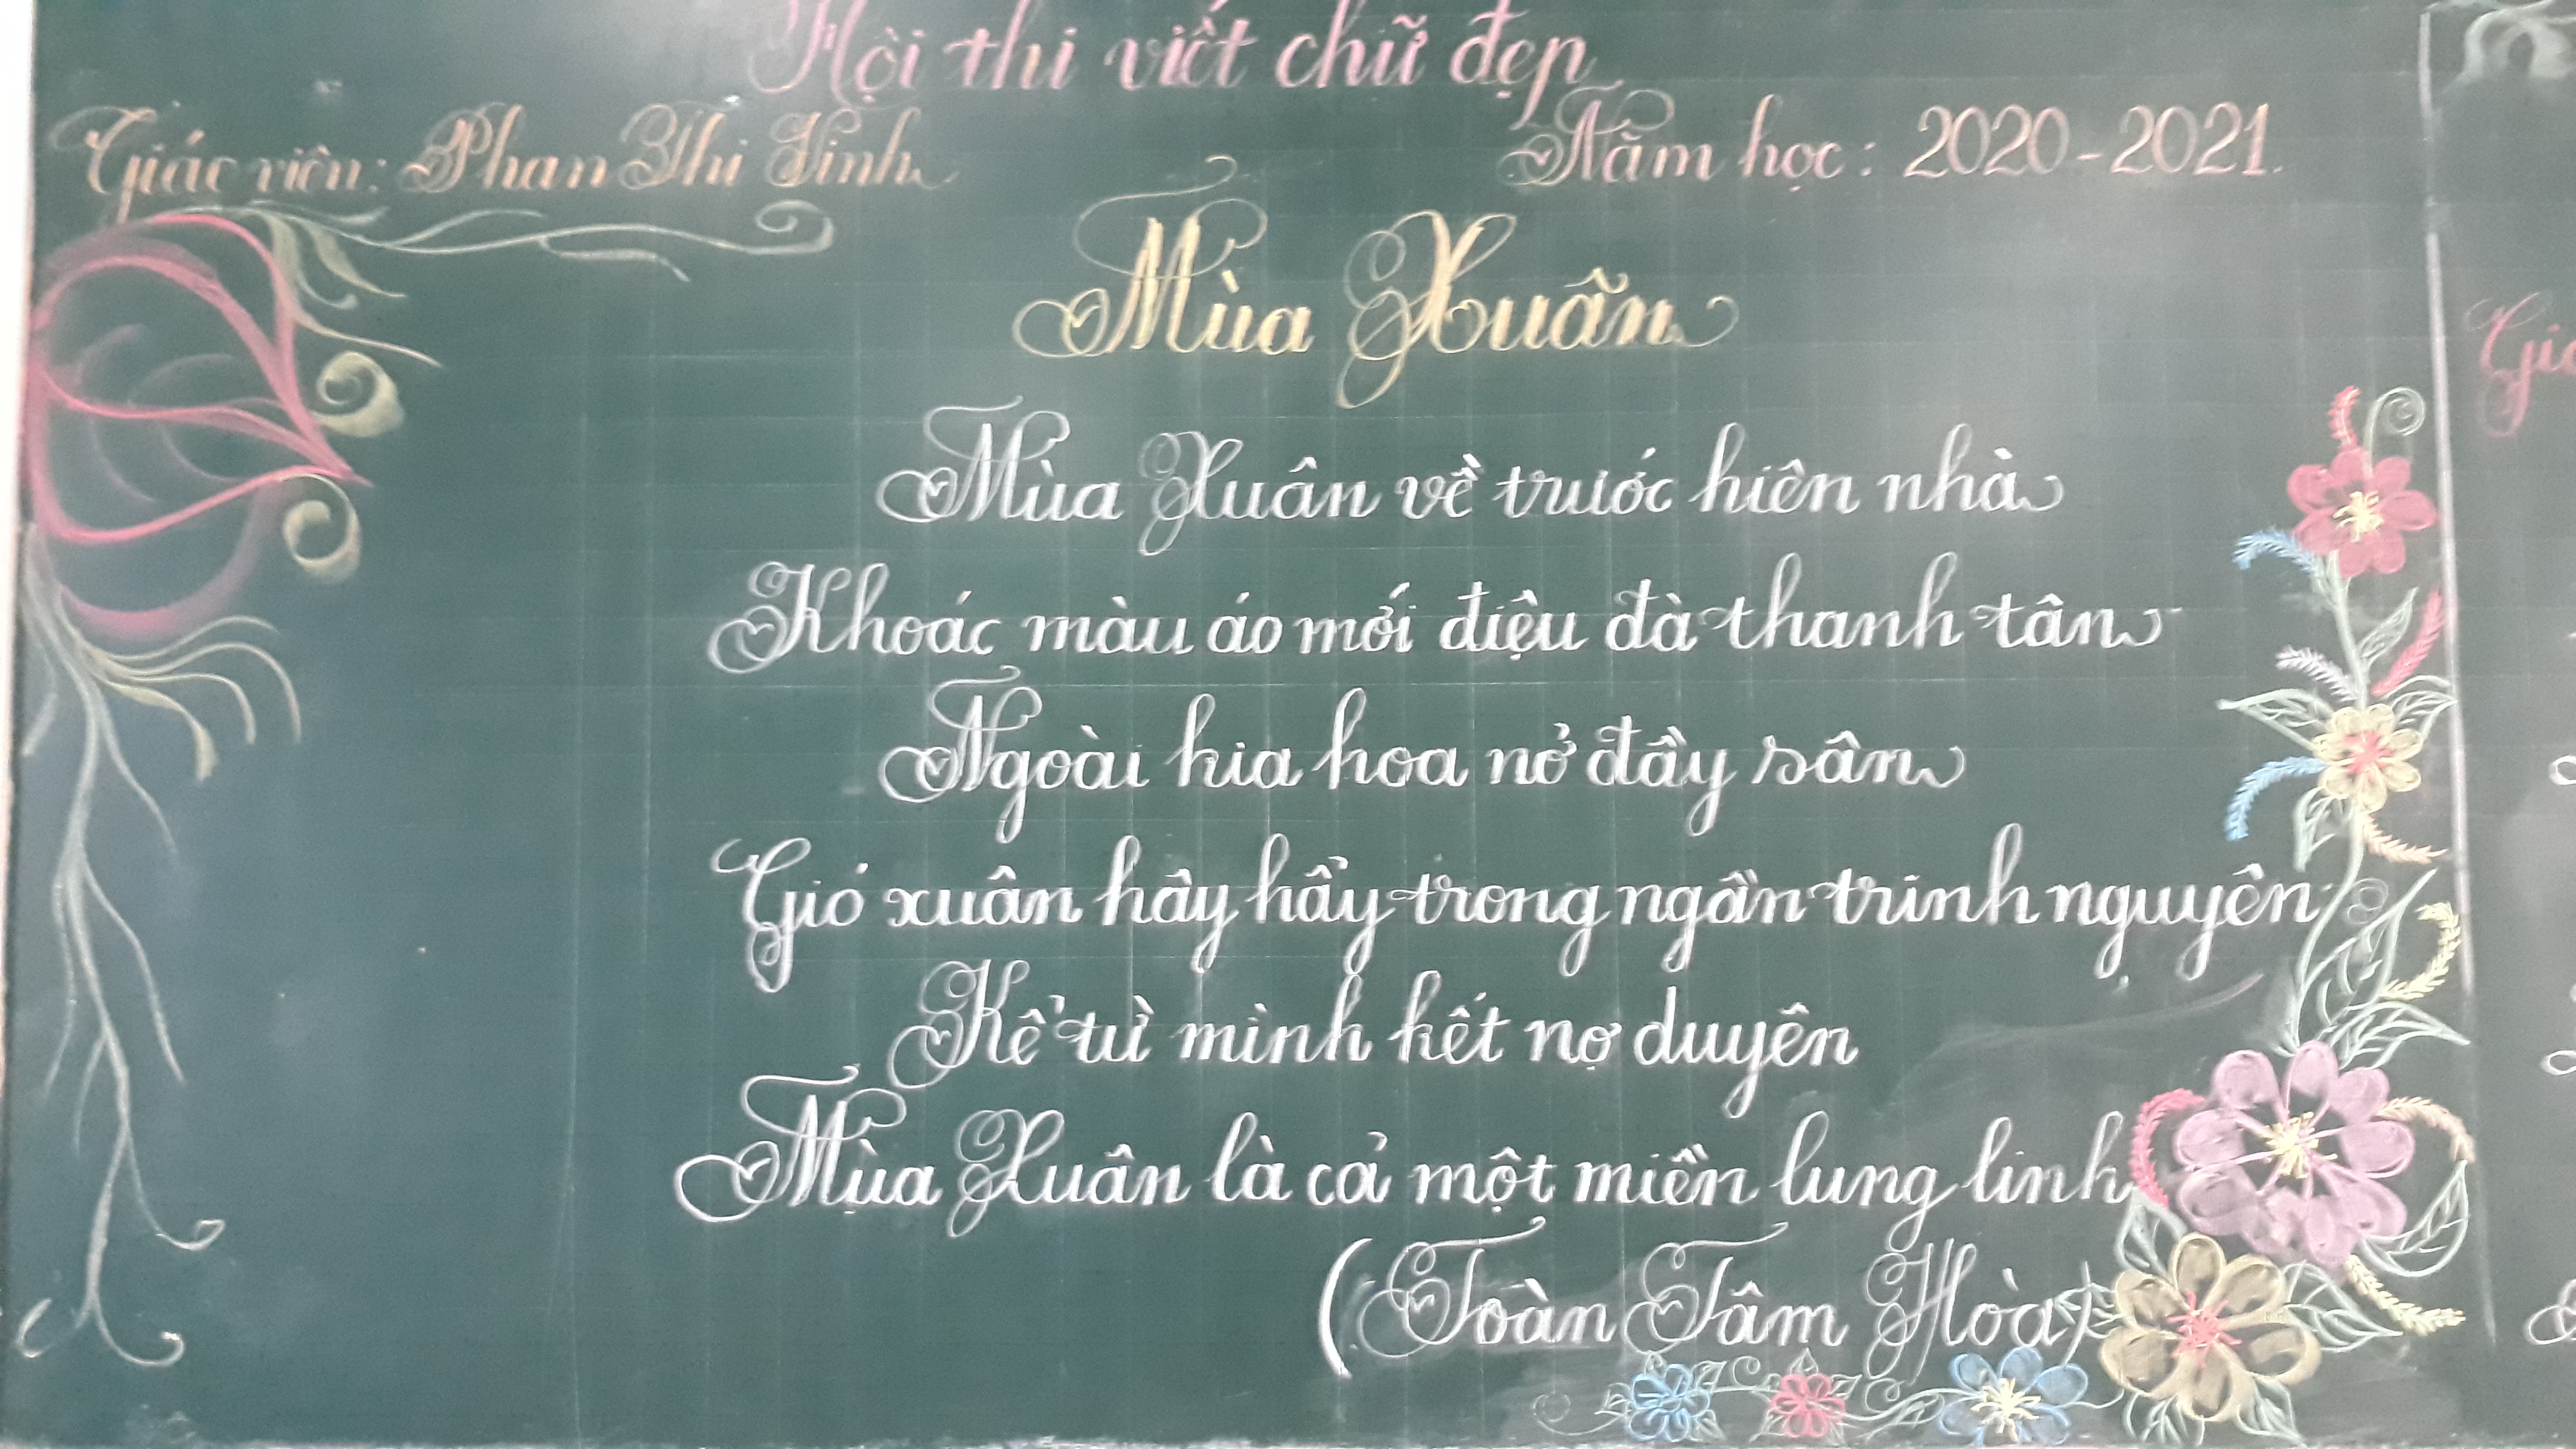 Hội thi viết chữ đẹp
Giáo viên: Phan Thị
Năm học: 2020-2021.
Mùa Xuân
Mùa Xuân về trước hiên nhà
Khoác màu áo mới điệu đà thanh tân
Ngoài kia hoa nở đầy sân
Gió xuân hây hẩy trong ngần trinh nguyên
Kể từ mình kết nợ duyên
Mùa Xuân là cả một miền lung linh
(Toàn Tâm Hòa)